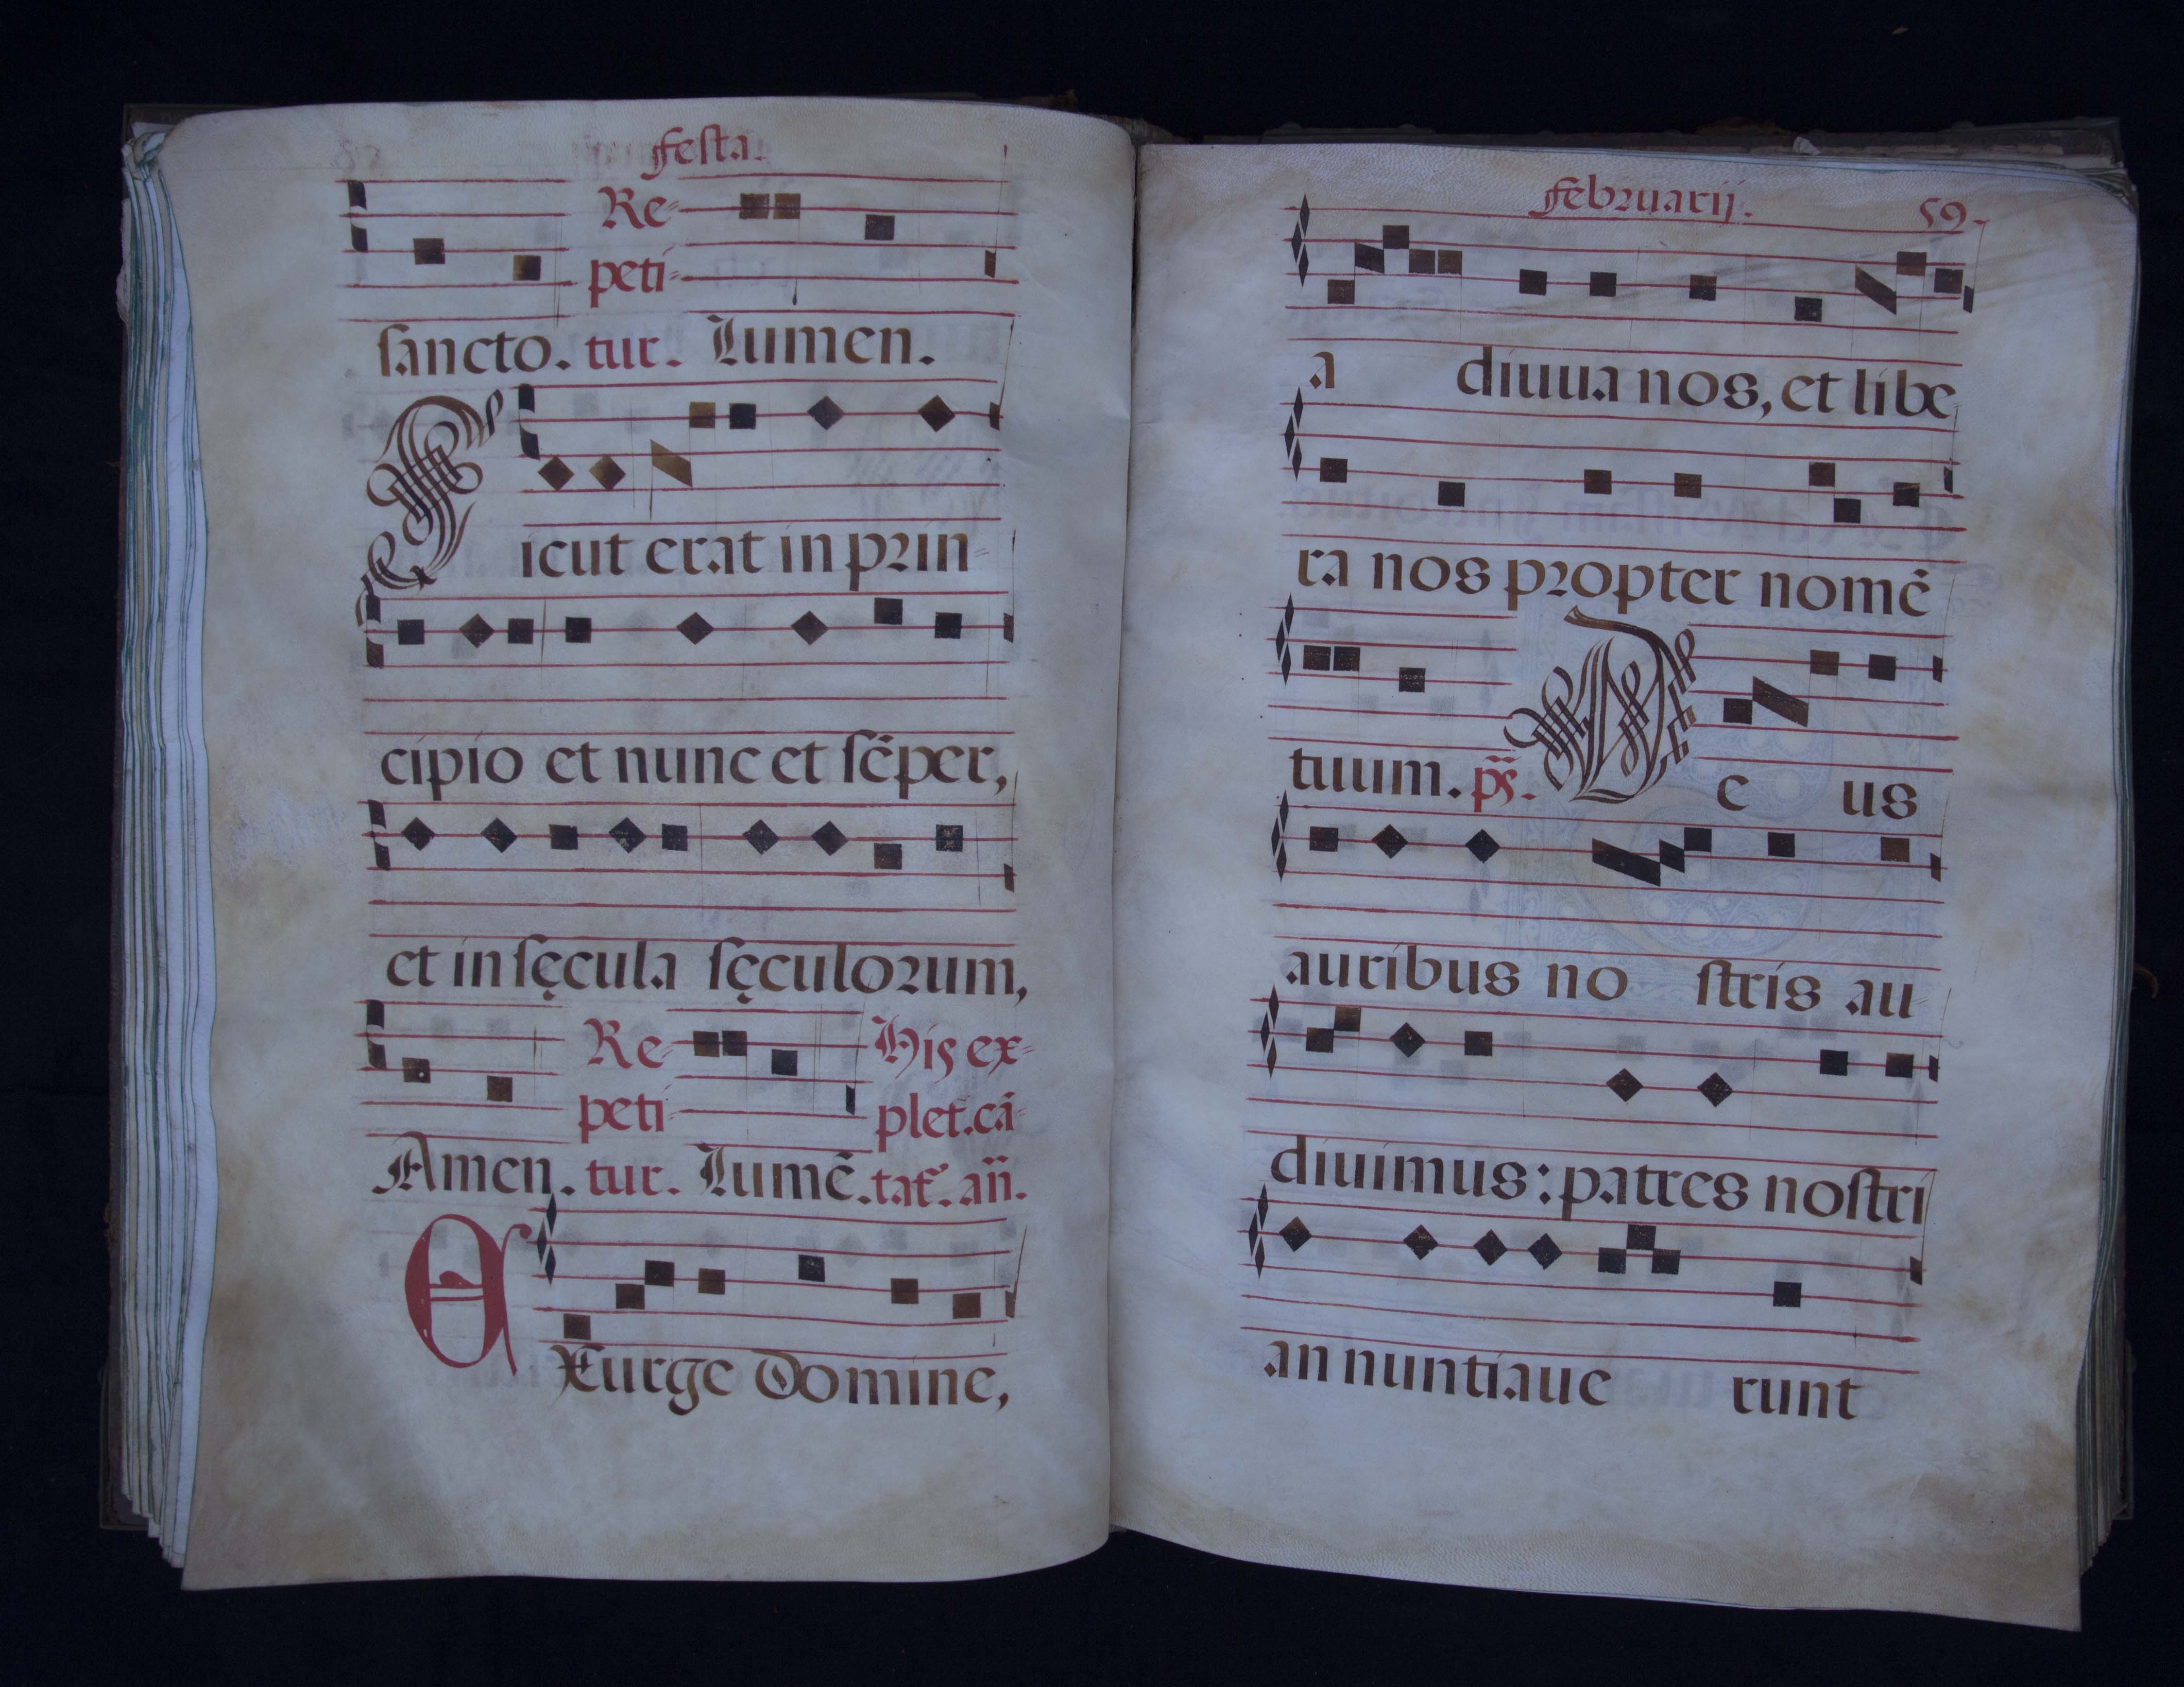 festa.
Re-
peti-
sancto. tur. Lumen.
Sicut erat in prin-
cipio et nunc et sẽper,
et in sęcula sęculorum,
Re- His ex-
peti- plet. cã-
Amen. tur. Lumẽ. tat. añ.
EXurge Domine,
februarij. 59.
a diuua nos, et libe
ra nos propter nomẽ
tuum. ps. De us
auribus no stris au-
diuimus: patres nostri
an nuntiaue runt